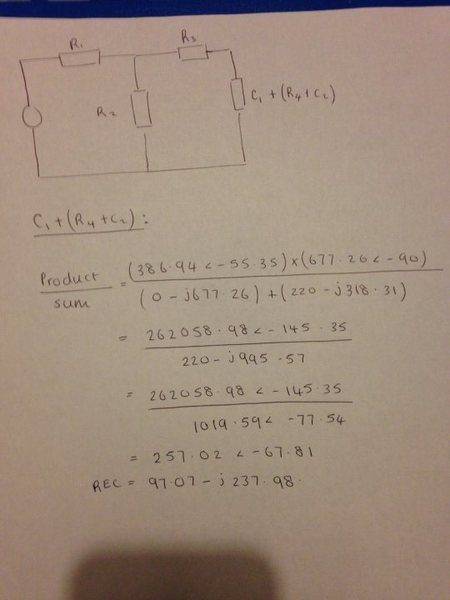 R1 R3
R2 C1 + (R4 + C2)
C1 + (R4 + C2) :
Product / sum = (386.94 < -55.35) × (677.26 < -90) / (0 - j677.26) + (220 - j318.31)
= 262058.98 < -145.35 / 220 - j995.57
= 262058.98 < -145.35 / 1019.59 < -77.54
= 257.02 < -67.81
REC = 97.07 - j237.98.